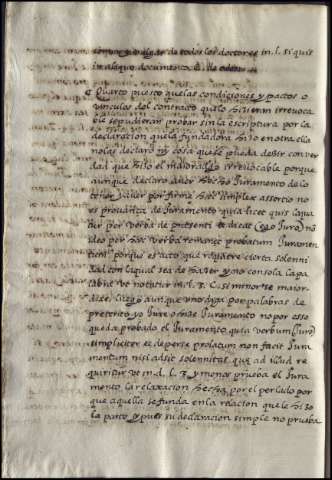 comun y vulgar de todos los doctores in l. si quis
in aliquo documento C. de eden.
Quarto puesto que las condiciones y pactos o
vinculos del contrato que lo hizieran irrevoca
ble se pudieran probar sin la escriptura por la
declaracion que la fundadora hizo en otra ella
no las declaro ni cosa que se pueda dezir con ver
dad que hizo el maioradgo irrevocable porque
aunque declaro aver hecho Juramento de lo
tener y aver por firme haec simplex assertio no
es probatiua de Juramento quia licet quis loqua
tur per verba de presenti et dicat (ego Juro) no
ideo per haec verba remanet probatum Juramen
tum porque es acto que requiere cierta solenni
dad con la qual sea de hazer y no con sola la pa
labra ut notatur in l. 3. C. si minor se maior
dixe. luego aunque uno diga por palabras de
preterito yo Jure o hize Juramento no por eso
queda probado el Juramento quia verbum (Juro)
simpliciter et de per se prolatum non facit Jura
mentum nisi adsit solemnitas que ad illud re
quiritur ut in d. l. 3. y menos prueba el Jura
mento la relaxacion hecha por el perlado por
que aquella se funda en la relacion que le hizo
la parte y pues su declaracion simple no prueba